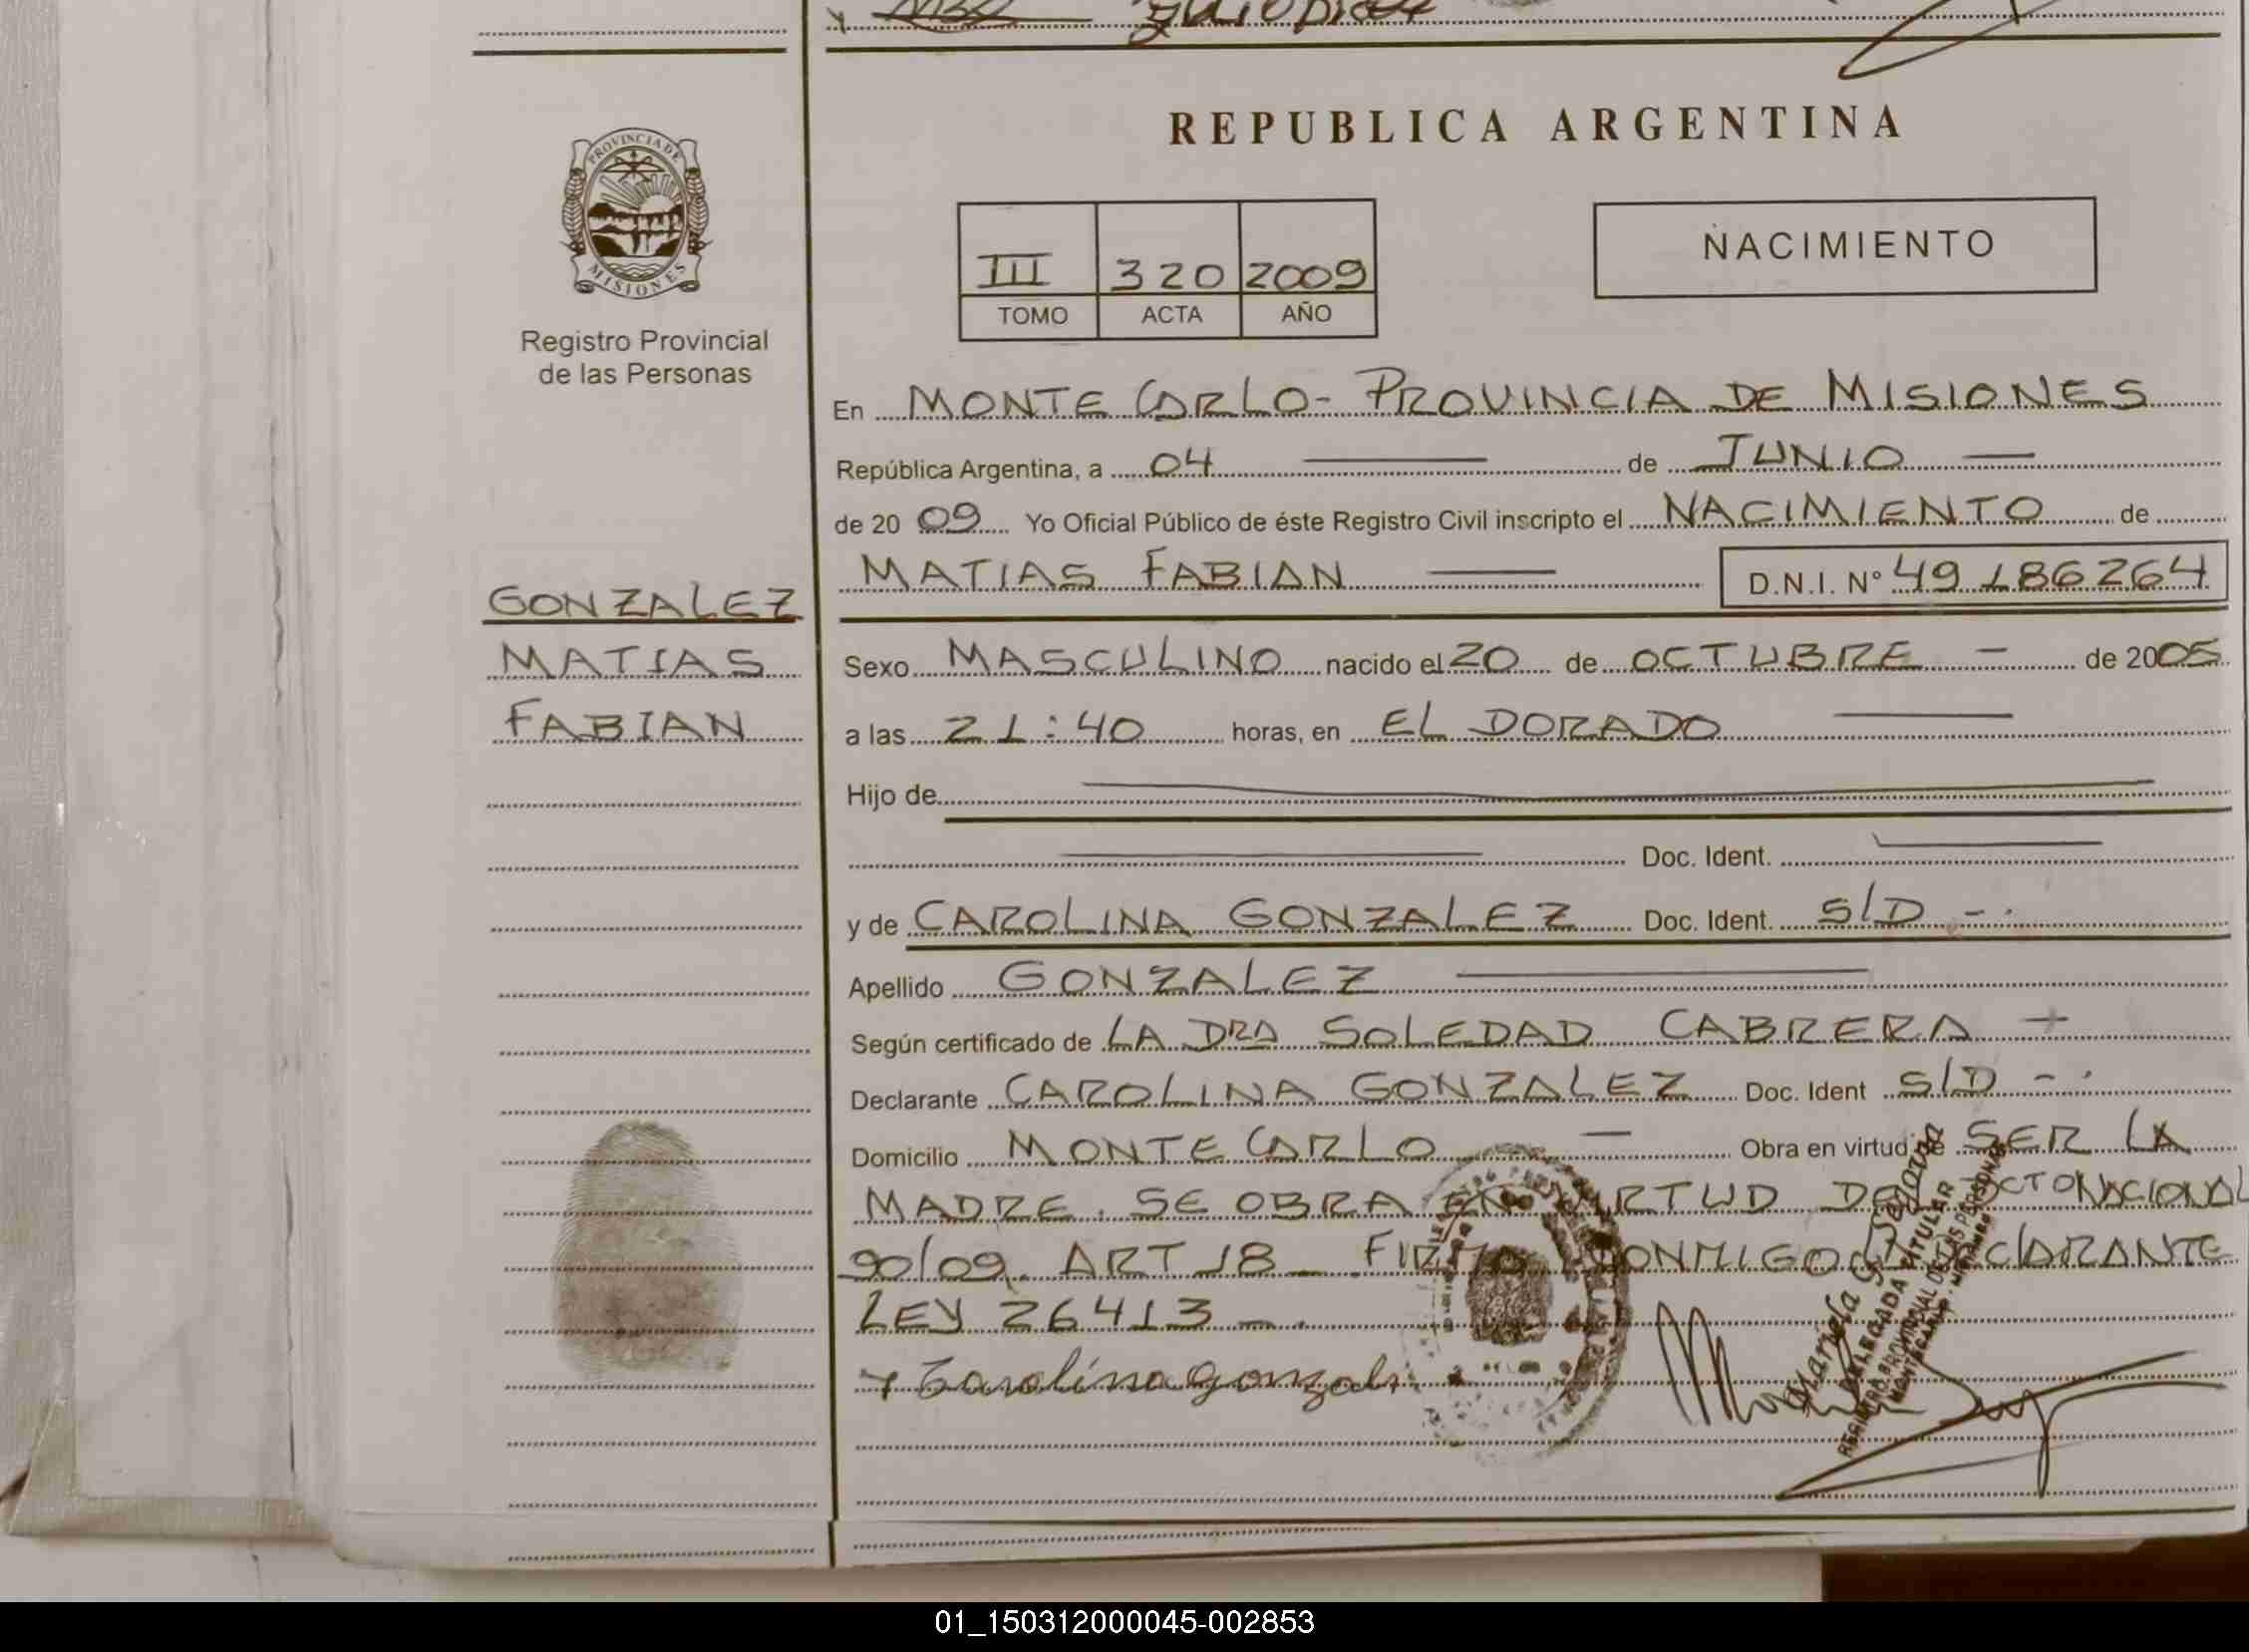 PROVINCIA DE
MISIONES
Registro Provincial
de las Personas
REPUBLICA ARGENTINA
III 320 2009
TOMO ACTA AÑO
NACIMIENTO
En MONTE CARLO- PROVINCIA DE MISIONES
República Argentina, a 04 — de JUNIO —
de 2009 Yo Oficial Público de éste Registro Civil inscripto el NACIMIENTO de
MATIAS FABIAN — D.N.I. Nº 49186264
GONZALEZ
MATIAS
FABIAN
Sexo MASCULINO nacido el 20 de OCTUBRE - de 2005
a las 21:40 horas, en EL DORADO —
Hijo de —
— Doc. Ident. —
y de CAROLINA GONZALEZ Doc. Ident. S/D -.
Apellido GONZALEZ —
Según certificado de LA DRA SOLEDAD CABRERA -
Declarante CAROLINA GONZALEZ Doc. Ident S/D -.
Domicilio MONTE CARLO — Obra en virtud de SER LA
MADRE. SE OBRA EN VIRTUD DEL DCTO NACIONAL
90/09. ART 18 - FIRMA CONMIGO LA DECLARANTE
LEY 26413 -.
Carolina gonzal
Mariela S.
DELEGADA TITULAR
REGISTRO PROVINCIAL DE LAS PERSONAS
01_150312000045-002853